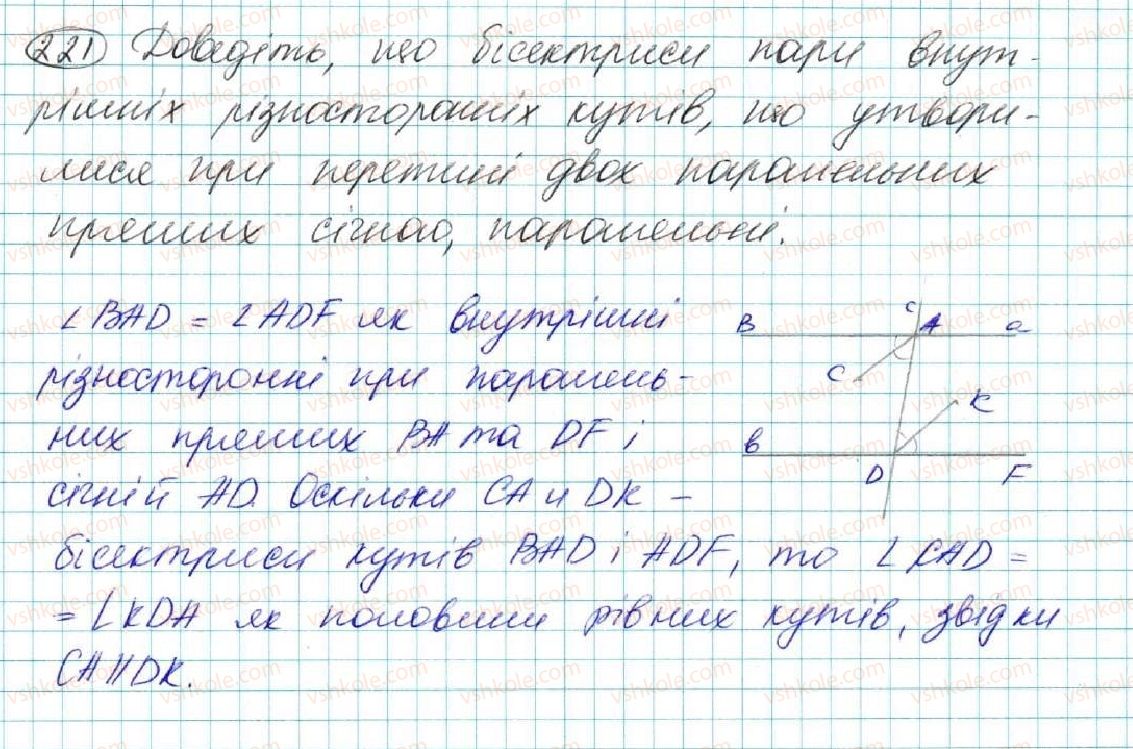 221 Доведіть, що бісектриси пари внут-
рішніх різносторонніх кутів, що утвори-
лися при перетині двох паралельних
прямих січною, паралельні.
∠BAD = ∠ADF як внутрішні
різносторонні при паралель-
них прямих BA та DF і
січній AD. Оскільки CA и DK –
бісектриси кутів BAD і ADF, то ∠CAD =
= ∠KDA як половини рівних кутів, звідки
CA∥DK.
c
B A a
C
K
b
D F